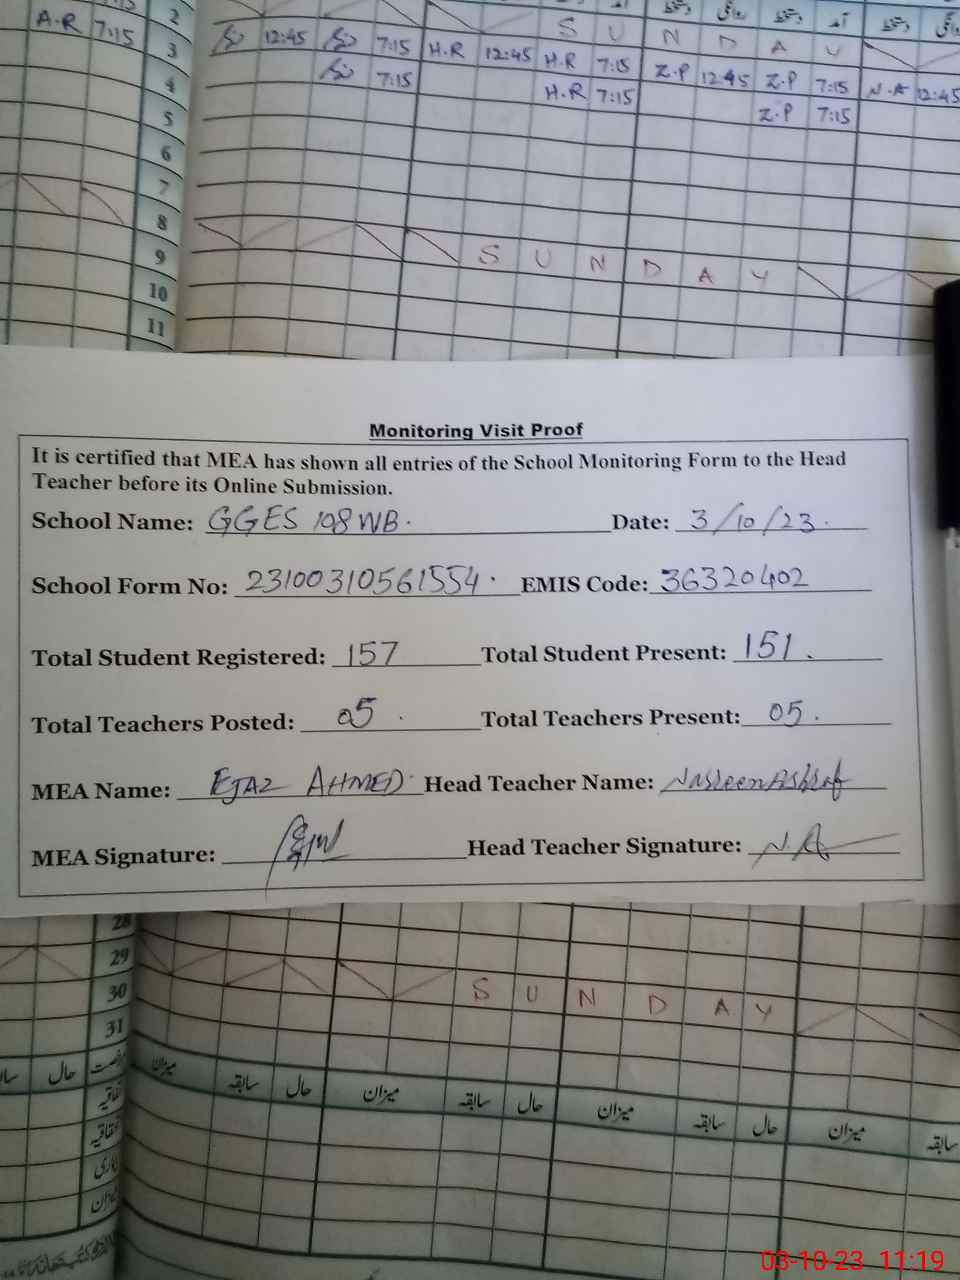 2
A.R 7:15
دستخط روانگی دستخط آمد دستخط
S U N D A Y
3
12:45 7:15 H.R 12:45 H.R 7:15 Z.P 12:45 Z.P 7:15 N.A 12:45
4
7:15 H.R 7:15 Z.P 7:15
5
6
7
8
9
S U N D A Y
10
11
Monitoring Visit Proof
It is certified that MEA has shown all entries of the School Monitoring Form to the Head
Teacher before its Online Submission.
School Name: GGES 108 WB. Date: 3/10/23.
School Form No: 23100310561554. EMIS Code: 36320402
Total Student Registered: 157 Total Student Present: 151.
Total Teachers Posted: 05. Total Teachers Present: 05.
MEA Name: EJAZ AHMED Head Teacher Name: Nasreen Ashraf
MEA Signature: Head Teacher Signature: N.A
28
29
30
S U N D A Y
31
حال رخصت میزان سابقہ حال میزان سابقہ حال میزان سابقہ حال میزان سابقہ
اتفاقیہ
03-10-23 11:19